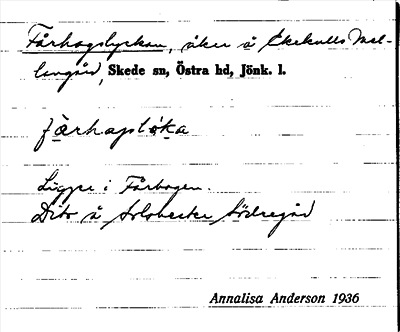 Fårhagslyckan, åker å Ekekulls Mel-
langård, Skede sn, Östra hd, Jönk. l.
Ligger i Fårhagen.
Dito å Södregård
Annalisa Anderson 1936